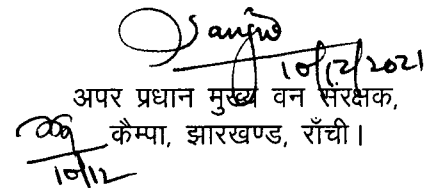 Sanjeev
10/12/2021
अपर प्रधान मुख्य वन संरक्षक,
कैम्पा, झारखण्ड, राँची।
10/12